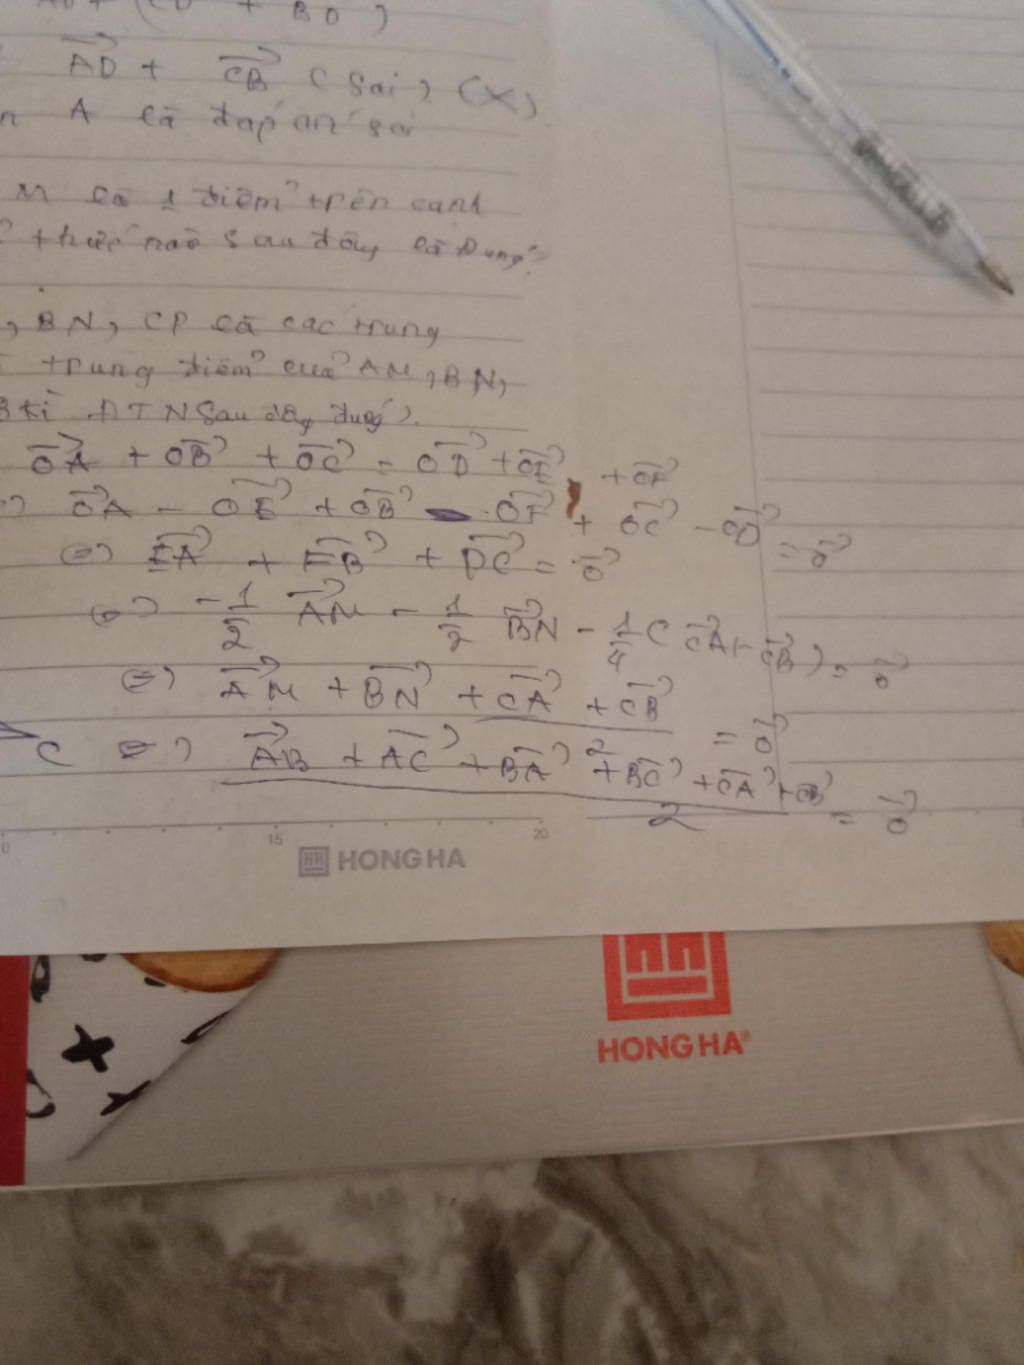 + BD)
AD + CB (Sai) (X)
A là đáp án sai
M là 1 điểm trên cạnh
thức nào sau đây là Đúng?
, BN, CP là các trung
trung điểm của AM, BN,
ĐTN sau đây đúng).
OA + OB + OC = OD + OE + OF
OA - OE + OB - OF + OC - OD = 0
<=> EA + FB + DC = 0
<=> -1/2 AM - 1/2 BN - 1/4 (CA + CB) = 0
<=> AM + BN + CA + CB / 2 = 0
C <=> AB + AC + BA + BC + CA + CB / 2 = 0
15 20
HONG HA
HONG HA®